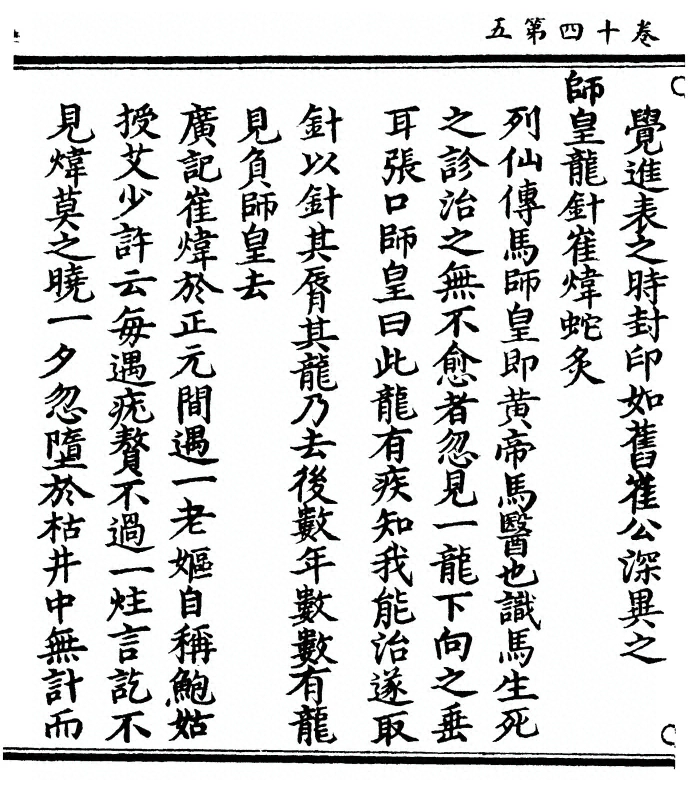 卷十四第五
覺進表之時封印如舊崔公深異之
師皇龍針崔煒蛇炙
列仙傳馬師皇即黄帝馬醫也識馬生死
之診治之無不愈者忽見一龍下向之垂
耳張口師皇曰此龍有疾知我能治遂取
針以針其脣其龍乃去後數年數數有龍
見負師皇去
廣記崔煒於正元間遇一老嫗自稱鮑姑
授艾少許云每遇疣贅不過一炷言訖不
見煒莫之曉一夕忽墮於枯井中無計而